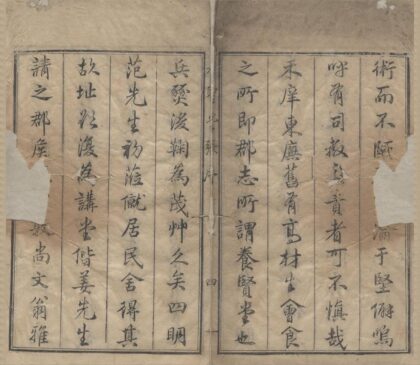 術而不于堅僻嗚
呼有司教責者可不慎哉
禾庠東廡舊有高材生會食
之所即郡志所謂養賢堂也
四
兵燹後鞠為茂艸久矣四明
范先生初蒞僦居民舍得其
故址欲復為講堂偕姜先生
請之郡侯尚文翁雅